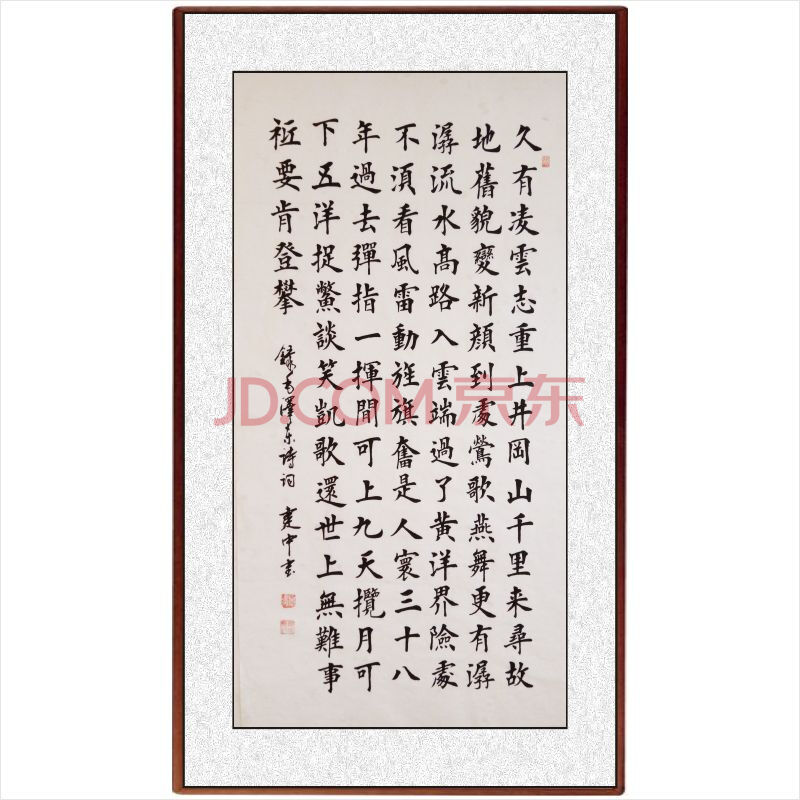 久有凌雲志重上井岡山千里来尋故
地舊貌變新顔到處鶯歌燕舞更有潺
潺流水高路入雲端過了黄洋界險處
不須看風雷動旌旗奮是人寰三十八
年過去彈指一揮間可上九天攬月可
下五洋捉鱉談笑凱歌還世上無難事
祗要肯登攀
録毛澤东詩詞 建中书
JD.COM 京东